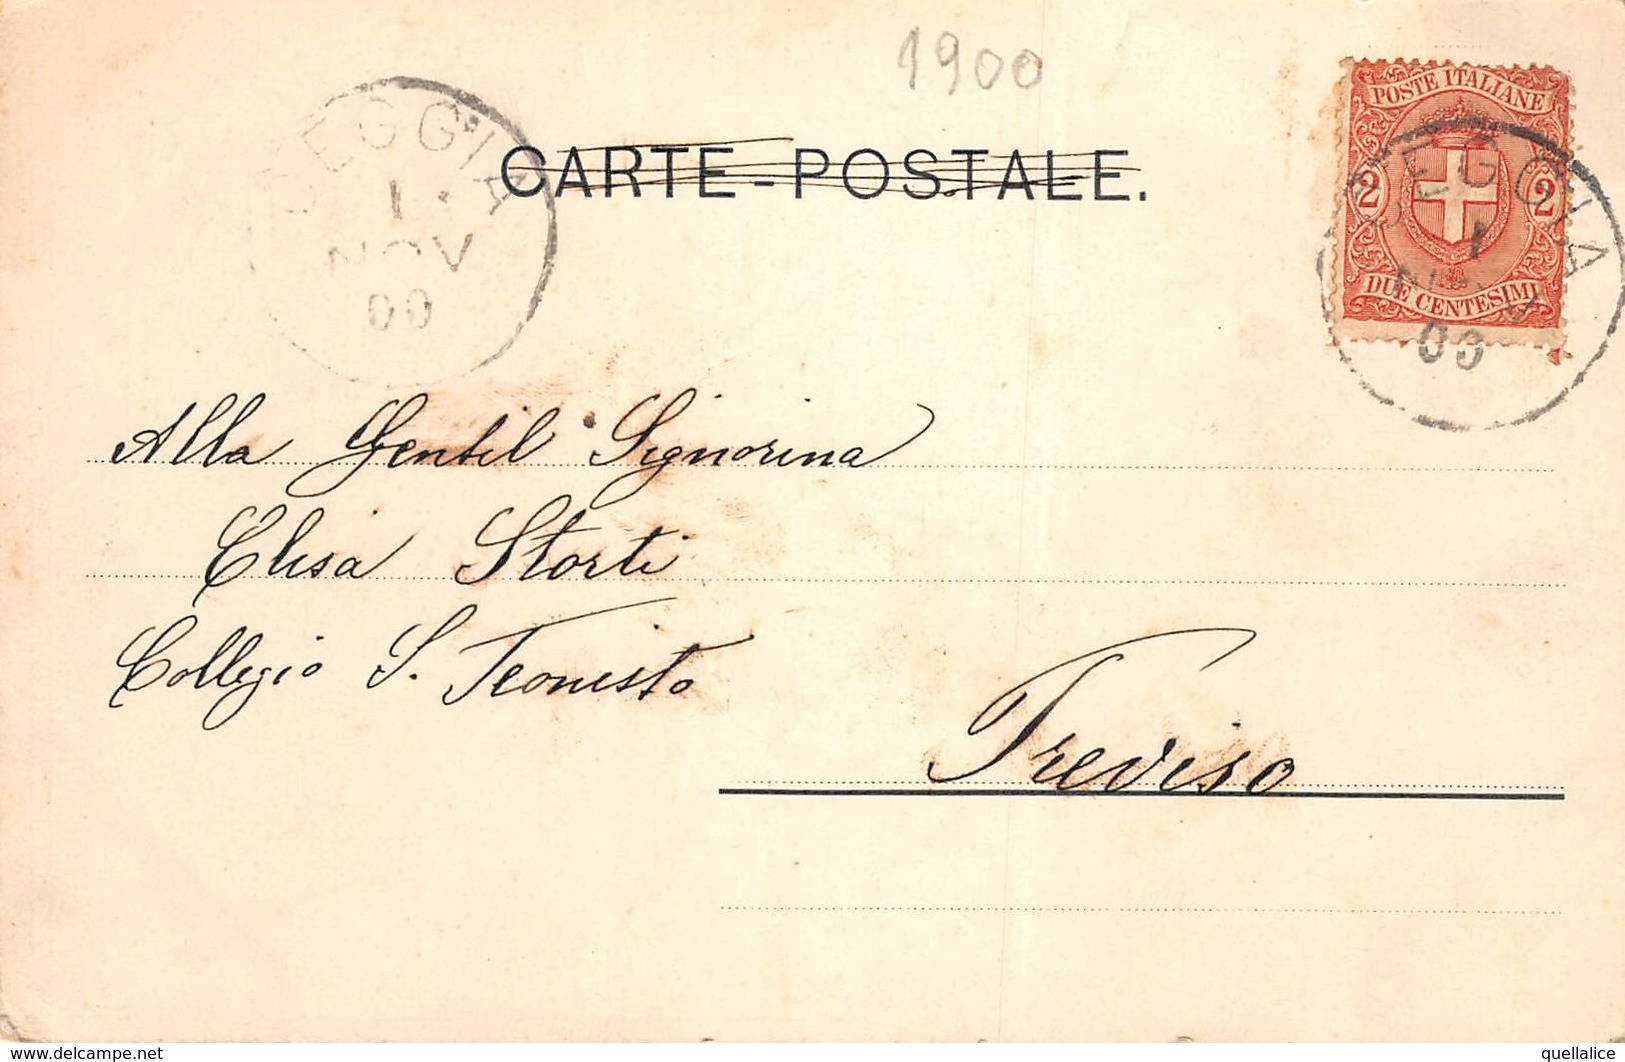 1900
CARTE-POSTALE.
POSTE ITALIANE
2 2
DUE CENTESIMI
CEGGIA
1
NOV
00
CEGGIA
1
00
Alla Gentil Signorina
Elisa Storti
Collegio S. Teonisto
Treviso
www.delcampe.net
quellalice